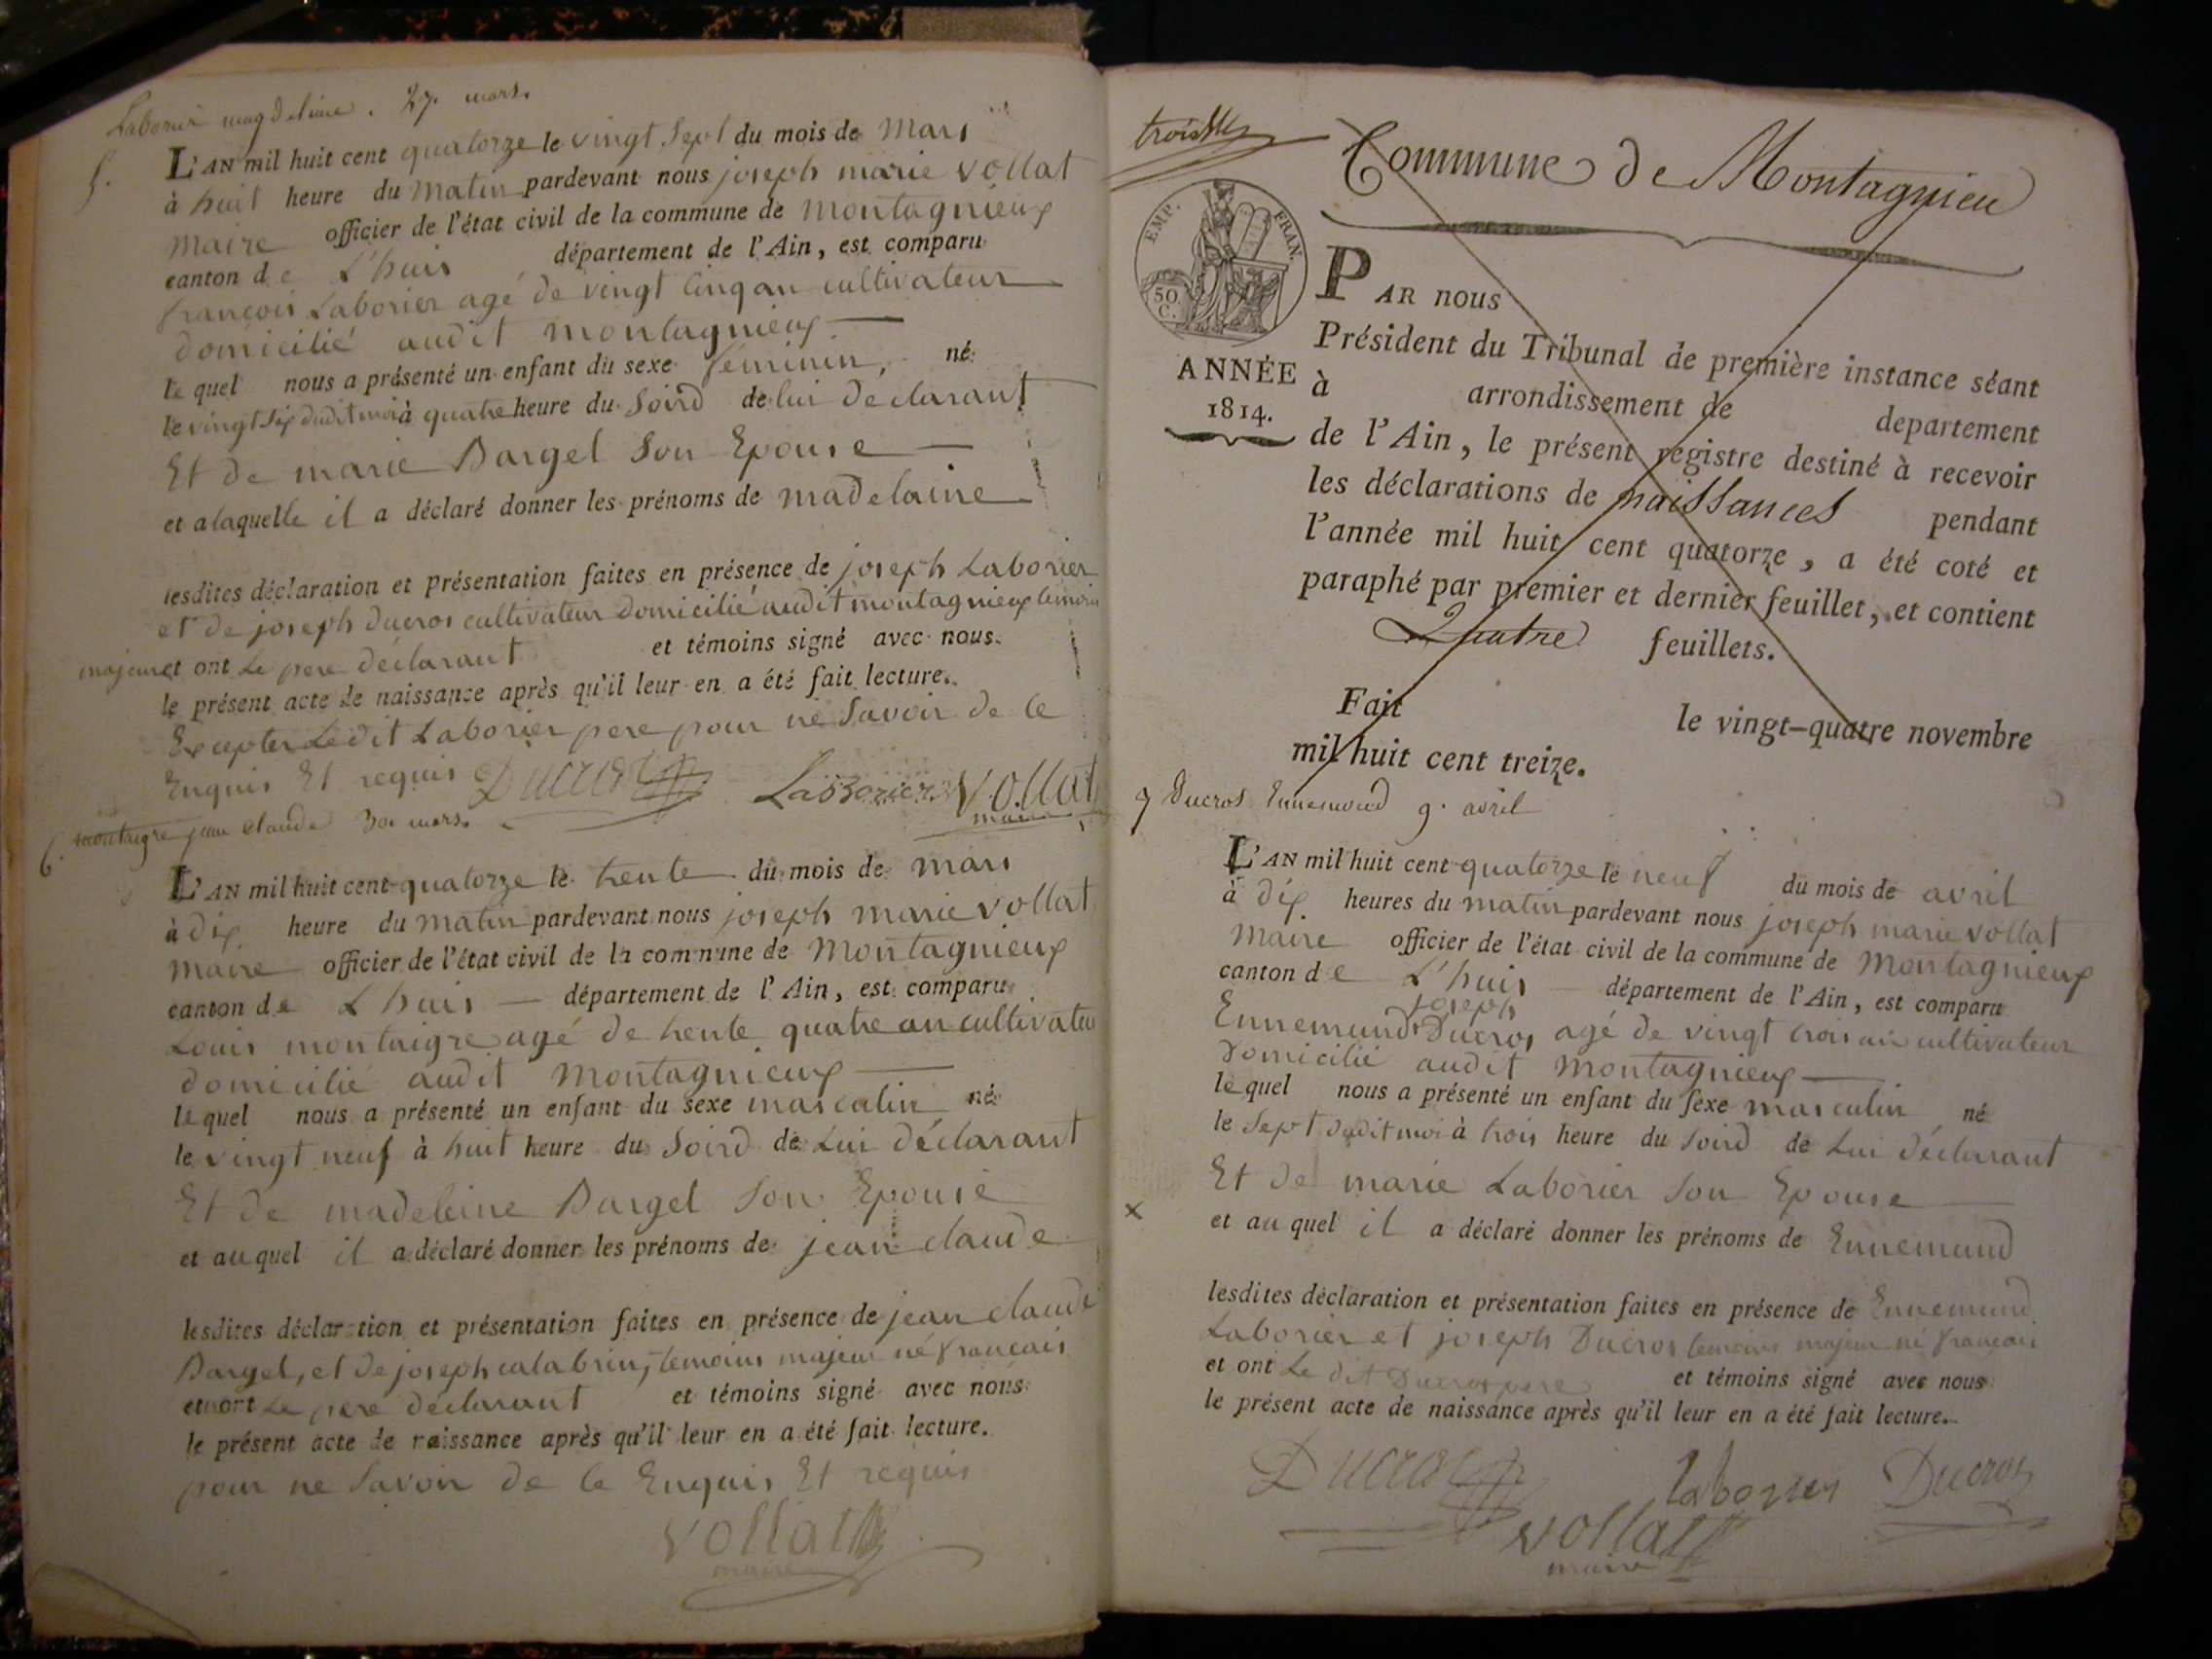 Laborier magdelaine. 27. mars.
5.
L'AN mil huit cent quatorze le vingt sept du mois de Mars
à huit heure du Matin pardevant nous joseph marie vollat
Maire officier de l'état civil de la commune de Montagnieux
canton de L'huis département de l'Ain, est comparu
françois Laborier agé de vingt Cinq an cultivateur
domicilié audit montagnieux
le quel nous a présenté un enfant du sexe féminin, né
le vingt six dudit moi à quatre heure du Soird de lui Déclarant
Et de marie Dargel Son Epouse
et a laquelle il a déclaré donner les prénoms de madelaine
lesdites déclaration et présentation faites en présence de joseph Laborier
et de joseph ducros cultivateur domicilié audit montagnieux temoin
majeur et ont Le pere declarant et témoins signé avec nous.
le présent acte de naissance après qu'il leur en a été fait lecture.
Excepter Ledit Laborier pere pour ne Savoir de Ce
Enquis Et requis Ducros Laborier Vollat
maire
6. montaigre jean claude 30. mars.
L'AN mil huit cent quatorze le trente du mois de mars
à dix heure du matin pardevant nous joseph marie vollat
maire officier de l'état civil de la commune de Montagnieux
canton de Lhuis département de l'Ain, est comparu
Louis montaigre agé de trente quatre an cultivateu
domicilié audit montagnieux
le quel nous a présenté un enfant du sexe masculin né
le vingt neuf à huit heure du Soird de Lui déclarant
Et de madeleine Dargel Son Epouse
et au quel il a déclaré donner les prénoms de jean claude
lesdites déclaration et présentation faites en présence de jean claude
Dargel, et de joseph calabrin, temoins majeur né français
et n'ont Le pere déclarant et témoins signé avec nous
le présent acte de naissance après qu'il leur en a été fait lecture.
pour ne Savoir de Ce Enquis Et requis
Vollat
maire
Commune de Montagnieu
EMP. FRAN.
50 C.
ANNÉE
1814.
PAR nous
Président du Tribunal de première instance séant
à arrondissement de departement
de l'Ain, le présent registre destiné à recevoir
les déclarations de naissances pendant
l'année mil huit cent quatorze, a été coté et
paraphé par premier et dernier feuillet, et contient
Quatre feuillets.
Fait le vingt-quatre novembre
mil huit cent treize.
7 Ducros Ennemond 9. avril
L'AN mil huit cent quatorze le neuf du mois de avril
à dix heures du matin pardevant nous joseph marie vollat
Maire officier de l'état civil de la commune de Montagnieux
canton de L'huis département de l'Ain, est comparu
joseph
Ennemund Ducros agé de vingt trois an cultivateur
Domicilié audit montagnieux
le quel nous a présenté un enfant du sexe masculin né
le Sept dudit moi à trois heure du Soird de Lui déclarant
Et de marie Laborier Son Epouse
x
et au quel il a déclaré donner les prénoms de Ennemund
lesdites déclaration et présentation faites en présence de Ennemund
Laborier et joseph Ducros temoins majeur né français
et ont Le dit Ducros pere et témoins signé avec nous
le présent acte de naissance après qu'il leur en a été fait lecture.
Ducros laborier Ducros
Vollat
maire